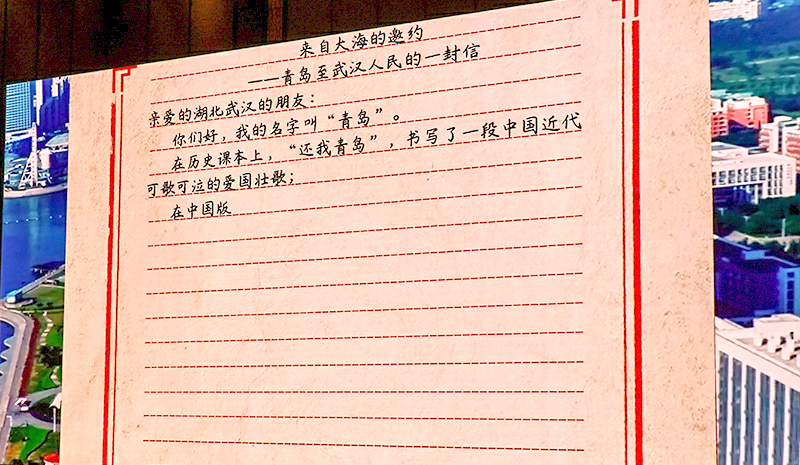 来自大海的邀约
——青岛至武汉人民的一封信
亲爱的湖北武汉的朋友：
你们好，我的名字叫“青岛”。
在历史课本上，“还我青岛”，书写了一段中国近代
可歌可泣的爱国壮歌；
在中国版